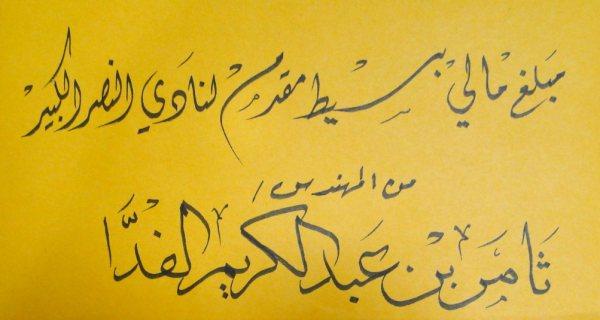 مبلغ مالي بسيط مقدم لنادي النصر الكبير
من المهندس /
ثامر بن عبد الكريم الفدّا